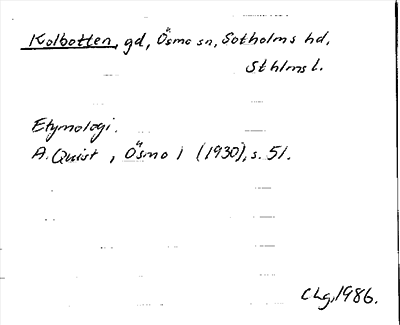 Kolbotten, gd, Ösmo sn, Sotholms hd,
Sthlms l.
Etymologi.
A. Quist, Ösmo 1 (1930), s. 51.
CLg, 1986.